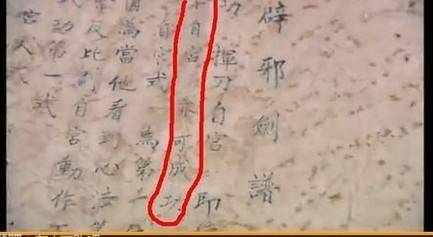 辟邪劍譜
功 揮刀自宮 即
自宮 亦可成功
自宮式 為第一
為當他看到心法
反比例 自宮動作
功第一式
世人